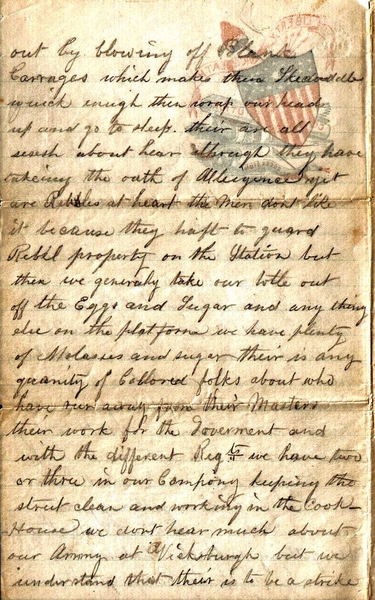 out by blowing off Blank
Carrages which makes them Skedaddle
quick enugh then wrap our heads
up and go to sleep. their are all
sesesh about hear although they have
takeing the oath of Allegence yet
are Rebbles at heart the men dont like
it because they haft to guard
Rebel property on the Station but
then we generally take our tolle out
off the Eggs and Sugar and any thing
else on the platform we have plenty
of Molasses and suger their is any
quanity of Collored folks about who
have run away from their Masters
their work for the Goverment and
with the different Regts we have two
or three in our Company keeping the
streut clean and working in the Cook
House we dont hear much about
our Ammy at Vicksburgh but we
understand that their is to be a strike